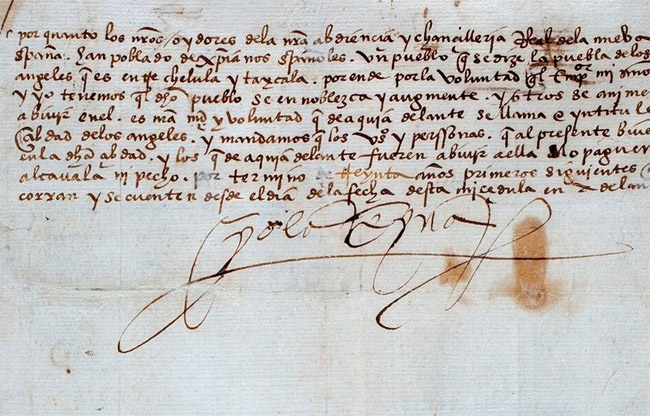 por quanto los nr̃os oydores dela nr̃a abdiencia y chancilleria Real dela nueba
españa. han poblado de xp̃ianos españoles. Un pueblo que se dize la puebla delos
angeles q̃ es entre chelula y taxcala. por ende por la voluntad q̃l Emp̃or mi señor
y yo tenemos q̃l dho pueblo se en noblezca y augmente. y otros se anime
a bivir enel. es mr̃a md̃ y voluntad que de aqui a delante se llame e yntitule
cibdad delos angeles. y mandamos q̃ los vos y perssonas. que al presente bive
en la dha cibdad. y los que de aqui a delante fueren a bivir a ella no paguen
alcavala ni pecho. por termino de treynta años primeros siguientes
corran y se cuenten desde el dia de la fecha desta mi cedula en a delan
yo la Reyna